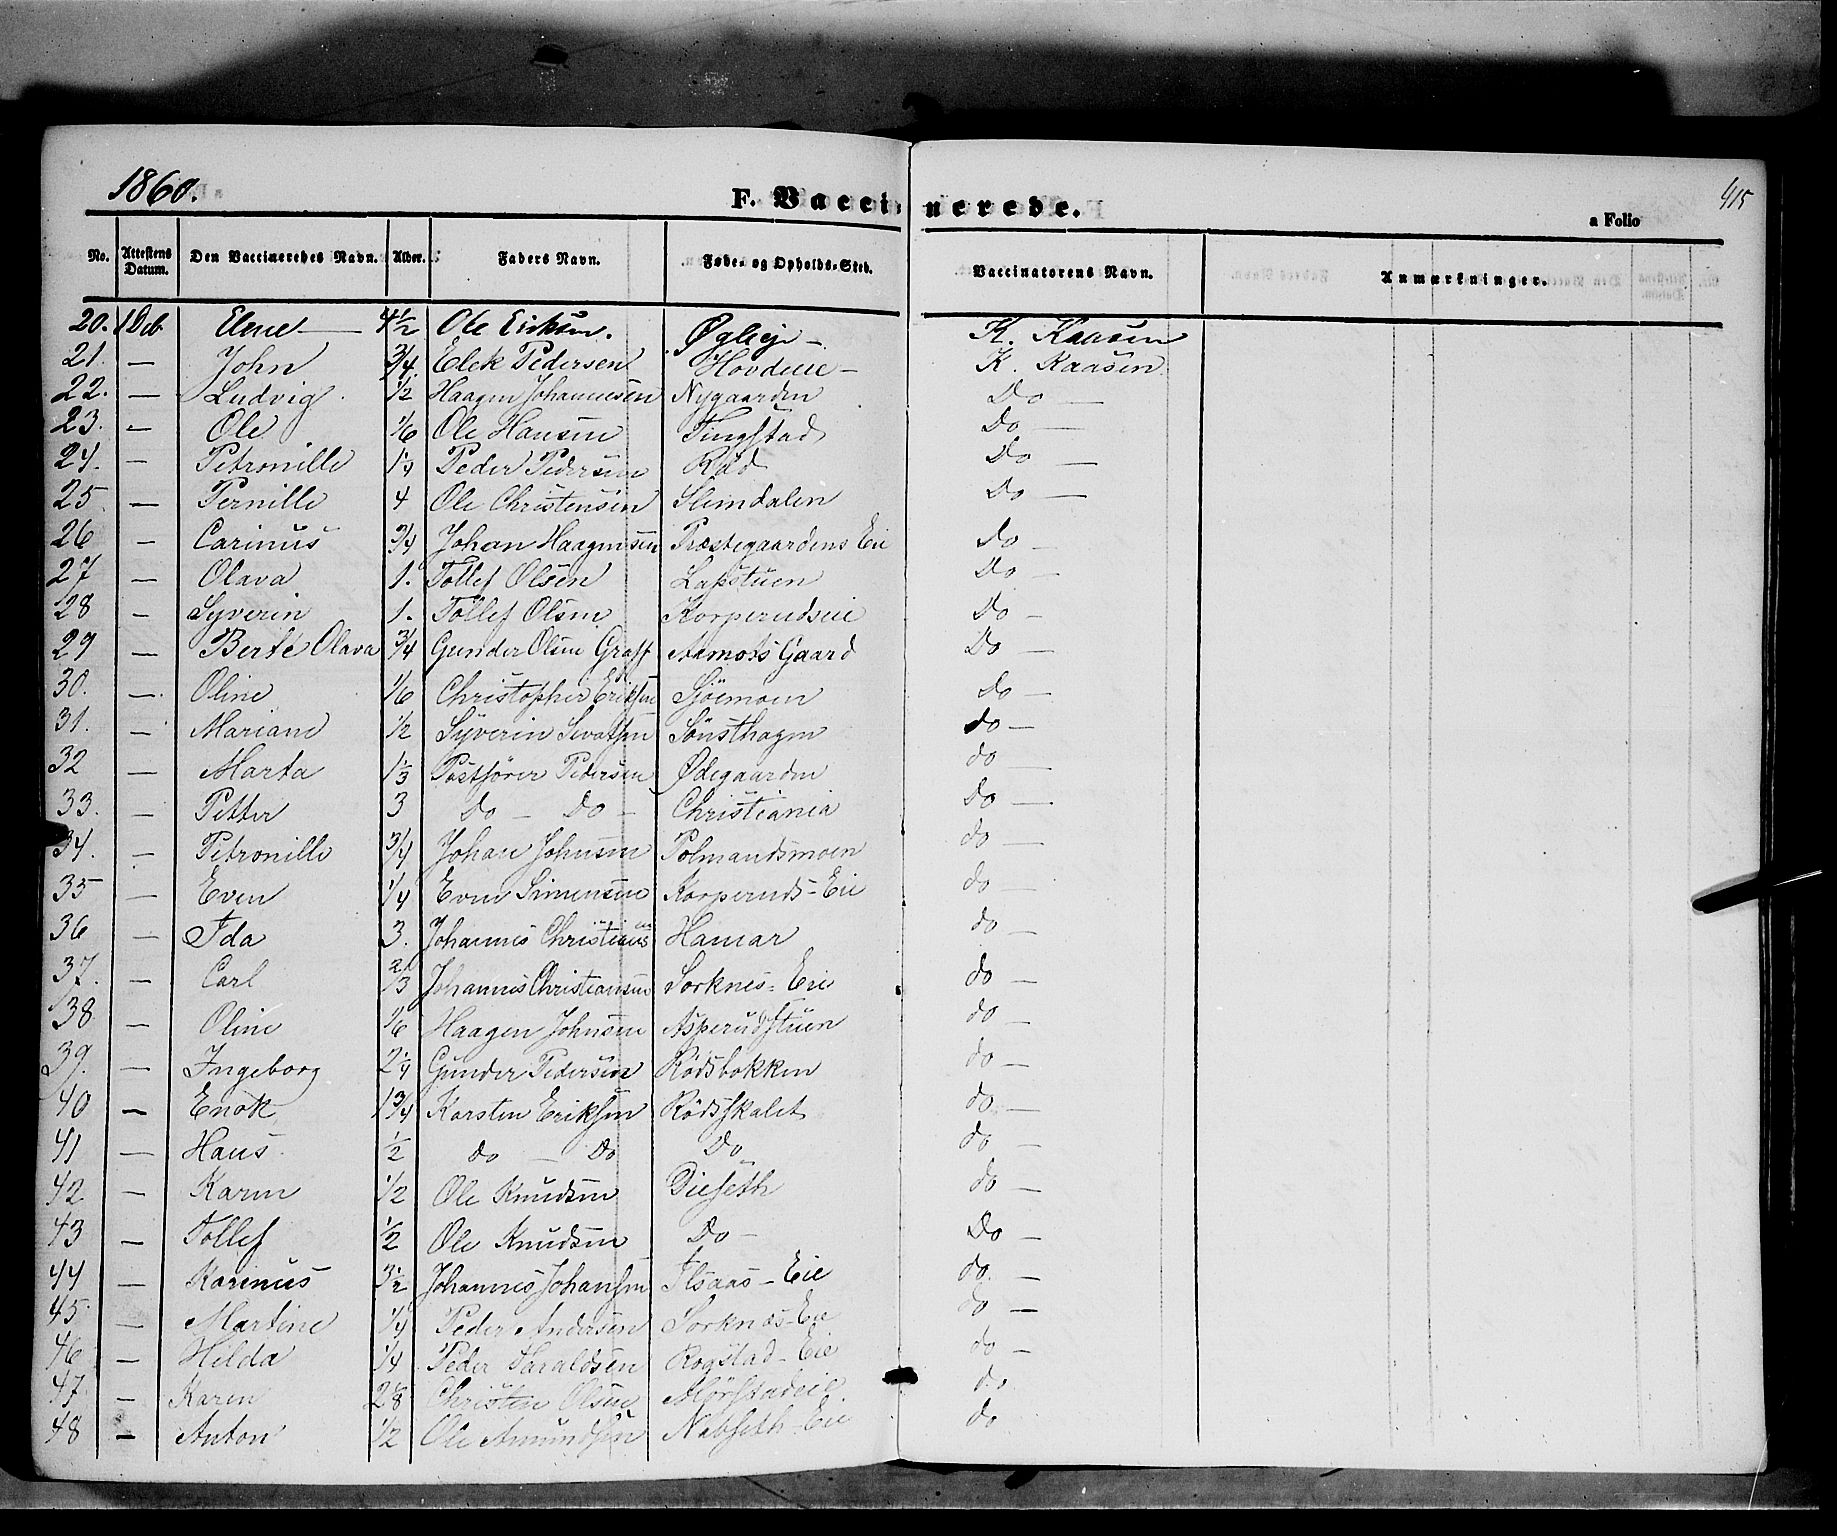 1860.
F. Vaccinerede.
415
a Folio
No. Attestens Datum. Den Vaccineredes Navn. Alder. Faders Navn. Føde- og Opholds-Sted. Vaccinatorens Navn. Anmærkninger.
20. 1 Oct. Elene 4½ Ole Eriksen. K. Kaasen
21. — John ¾ Elek Pedersen Hovdeie — K. Kaasen
22. — Ludvig ½ Haagen Johannesen Nygaarden Do —
23. — Ole 1/6 Ole Hansen Tingstad Do —
24. — Petronille ¼ Peder Pedersen Rød Do —
25 — Pernille 4 Ole Christensen Slemdalen Do —
26 — Carinus ¾ Johan Haagensen Præstegaardens Eie Do —
27 — Olava 1. Tollef Olsen Lapstuen Do —
28 — Syverin 1. Tollef Olsen Korperudseie Do —
29 — Berte Olava ¾ Gunder Olsen Graff Aamots Gaard Do —
30. — Oline 1/6 Christopher Eriksen Sjöemoen Do —
31. — Mariane ½ Syverin Sönsthagen do —
32 — Marta 1/3 Postfører Pedersen Ødegaarden do —
33. — Petter 3 Do — Do — Christiania do —
34. — Petronille ¾ Johan Johnsen Polmandsmoen do —
35 — Even ¼ Even Simensen Korperuds-Eie do —
36 — Ida 3. Johannes Christians Hamar do —
37. — Carl 2/3 Johannes Christiansen Sorknes-Eie do —
38 — Oline 1/6 Haagen Johnsen Asperudstuen do —
39. — Ingeborg 2¼ Gunder Pedersen Rödsbakken do —
40 — Enok 1¾ Karsten Eriksen Rödsskalet do —
41 — Hans ½ do — Do Do do —
42 — Karen ½ Ole Knudsen Dieseth do —
43 — Tollef ½ Ole Knudsen Do — Do —
44 — Karinus 3½ Johannes Johansen Ilsaas-Eie do. —
45. — Martine ¼ Peder Andersen Sorknæs-Eie do —
46 — Hilda ¼ Peder Haraldsen Rogstad-Eie do —
47. — Karen Christen Olsen Mørstadeie do.
48 — Anton ½ Ole Amundsen Nabseth-Eie do